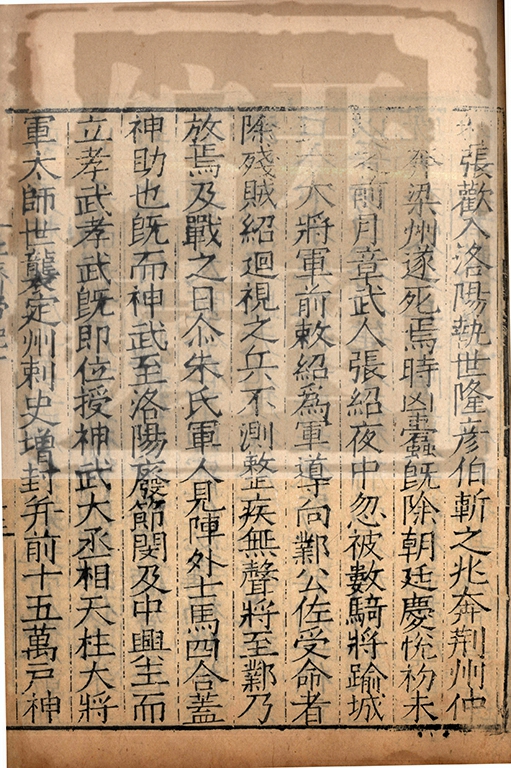 張歡入洛陽執世隆彦伯斬之兆奔荆州仲
奔梁州遂死焉時凶蠹旣除朝廷慶恱初未
前月章武人張紹夜中忽被數騎將踰城
大將軍前敕紹爲軍導向鄴云佐受命者
除殘賊紹廻視之兵不測整疾無聲將至鄴乃
放焉及戰之日尒朱氏軍人見陣外士馬四合蓋
神助也旣而神武至洛陽廢節閔及中興主而
立孝武孝武旣即位授神武大丞相天柱大將
軍太師世襲定州剌史增封并前十五萬戸神